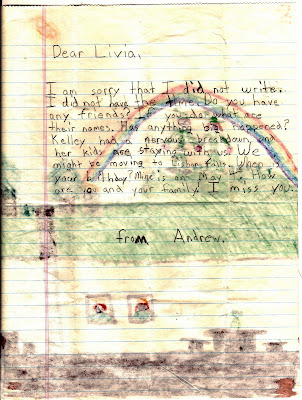 Dear Livia,
I am sorry that I did not write.
I did not have the time. Do you have
any friends? If you do what are
their names. Has anything big happened?
Kelley had a nervous breakdown, and
her kids are staying with us. We
might be moving to Lisbon Falls. When is
your birthday? Mine is on May 1. How
are you and your family. I miss you.
from Andrew.